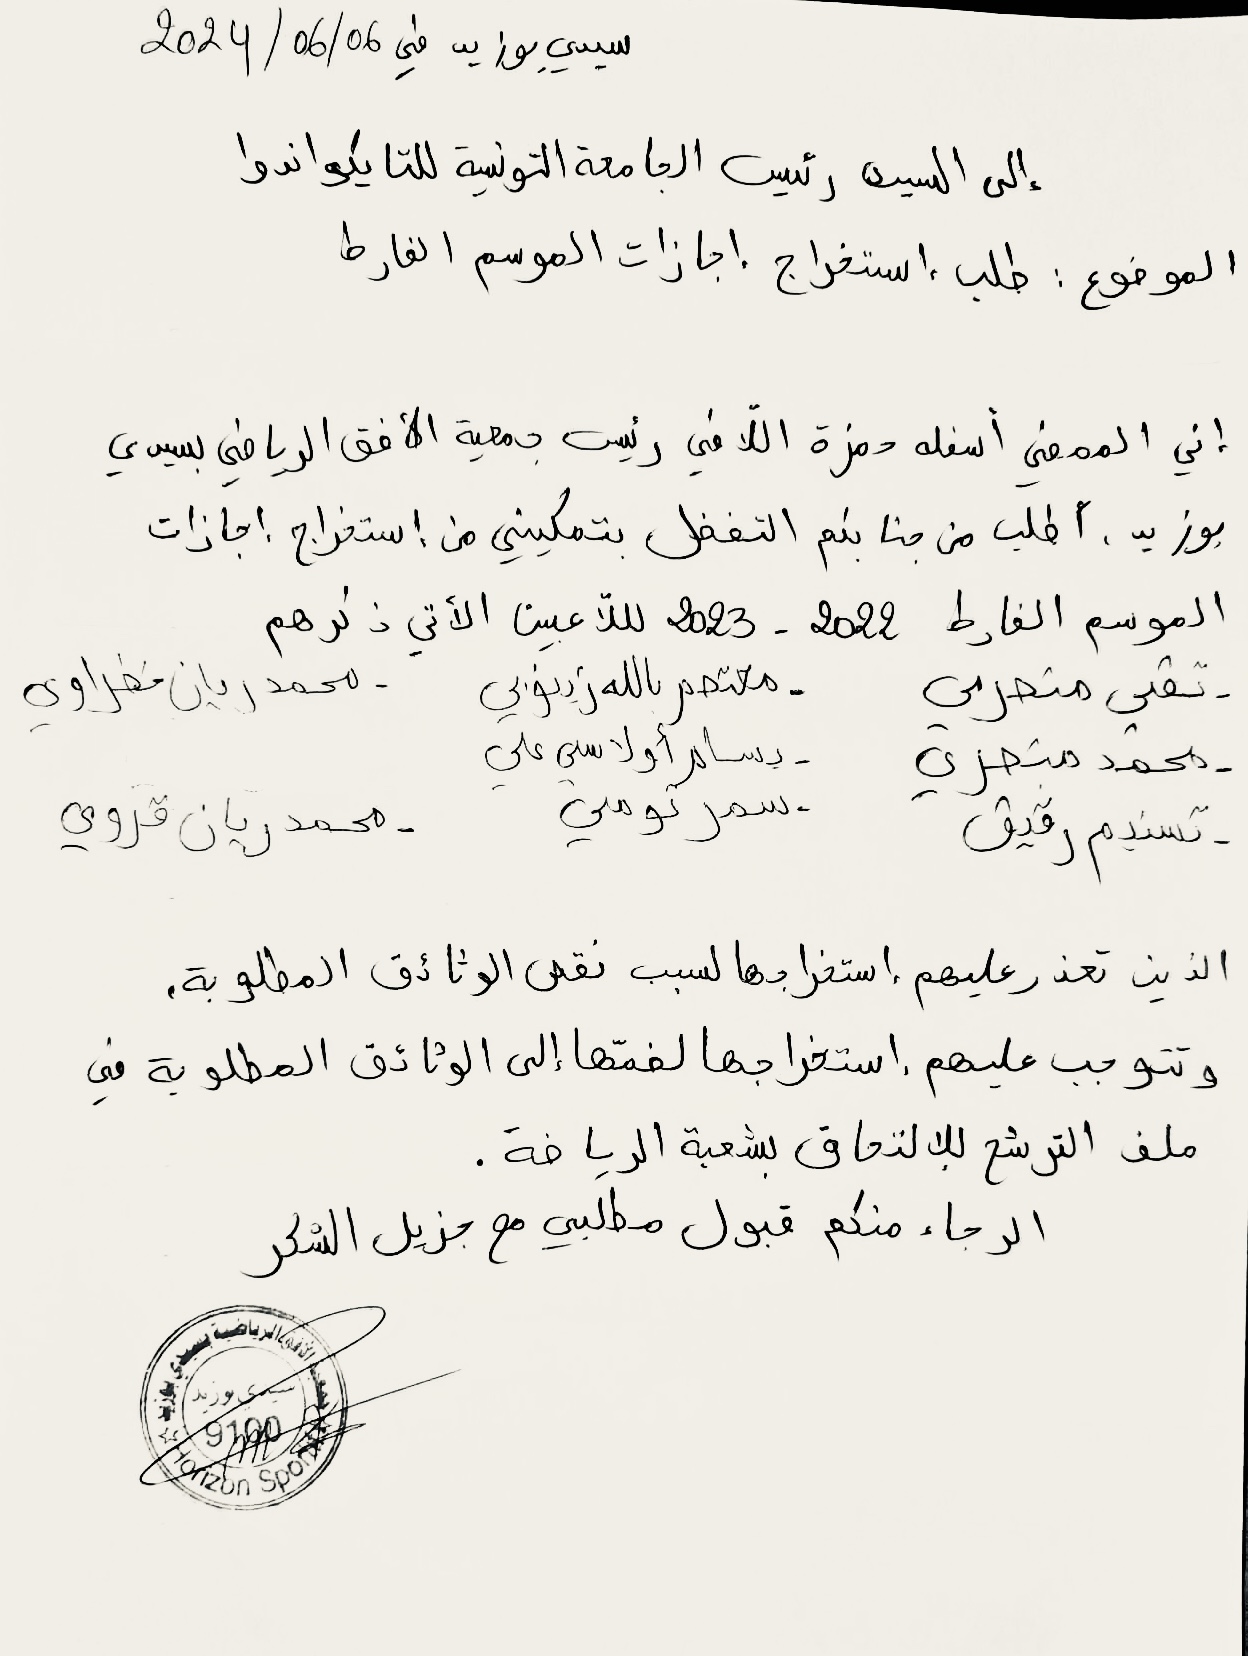 سيدي بوزيد في 2024/06/06
إلى السيد رئيس الجامعة التونسية للتايكواندوا
الموضوع : طلب إستخراج إجازات الموسم الفارط
إني الممضي أسفله حمزة اللّافي رئيس جمعية الأفق الرياضي بسيدي
بوزيد، أطلب من جنابكم التفضل بتمكيني من إستخراج إجازات
الموسم الفارط 2022 - 2023 للّاعبين الأتي ذكرهم
- تقى منصري - معتصم بالله زينوبي - محمد ريان خضراوي
- محمد منصري - بسام أولاسي علي
- تسنيم رقيق - سمر تومي - محمد ريان قروي
الذين تعذر عليهم إستخراجها لسبب نقص الوثائق المطلوبة.
وتتوجب عليهم إستخراجها لضمّها إلى الوثائق المطلوبة في
ملف الترشح للإلتحاق بشعبة الرياضة .
الرجاء منكم قبول مطلبي مع جزيل الشكر
جمعية الأفق الرياضية بسيدي بوزيد
سيدي بوزيد
9100
Horizon Sport